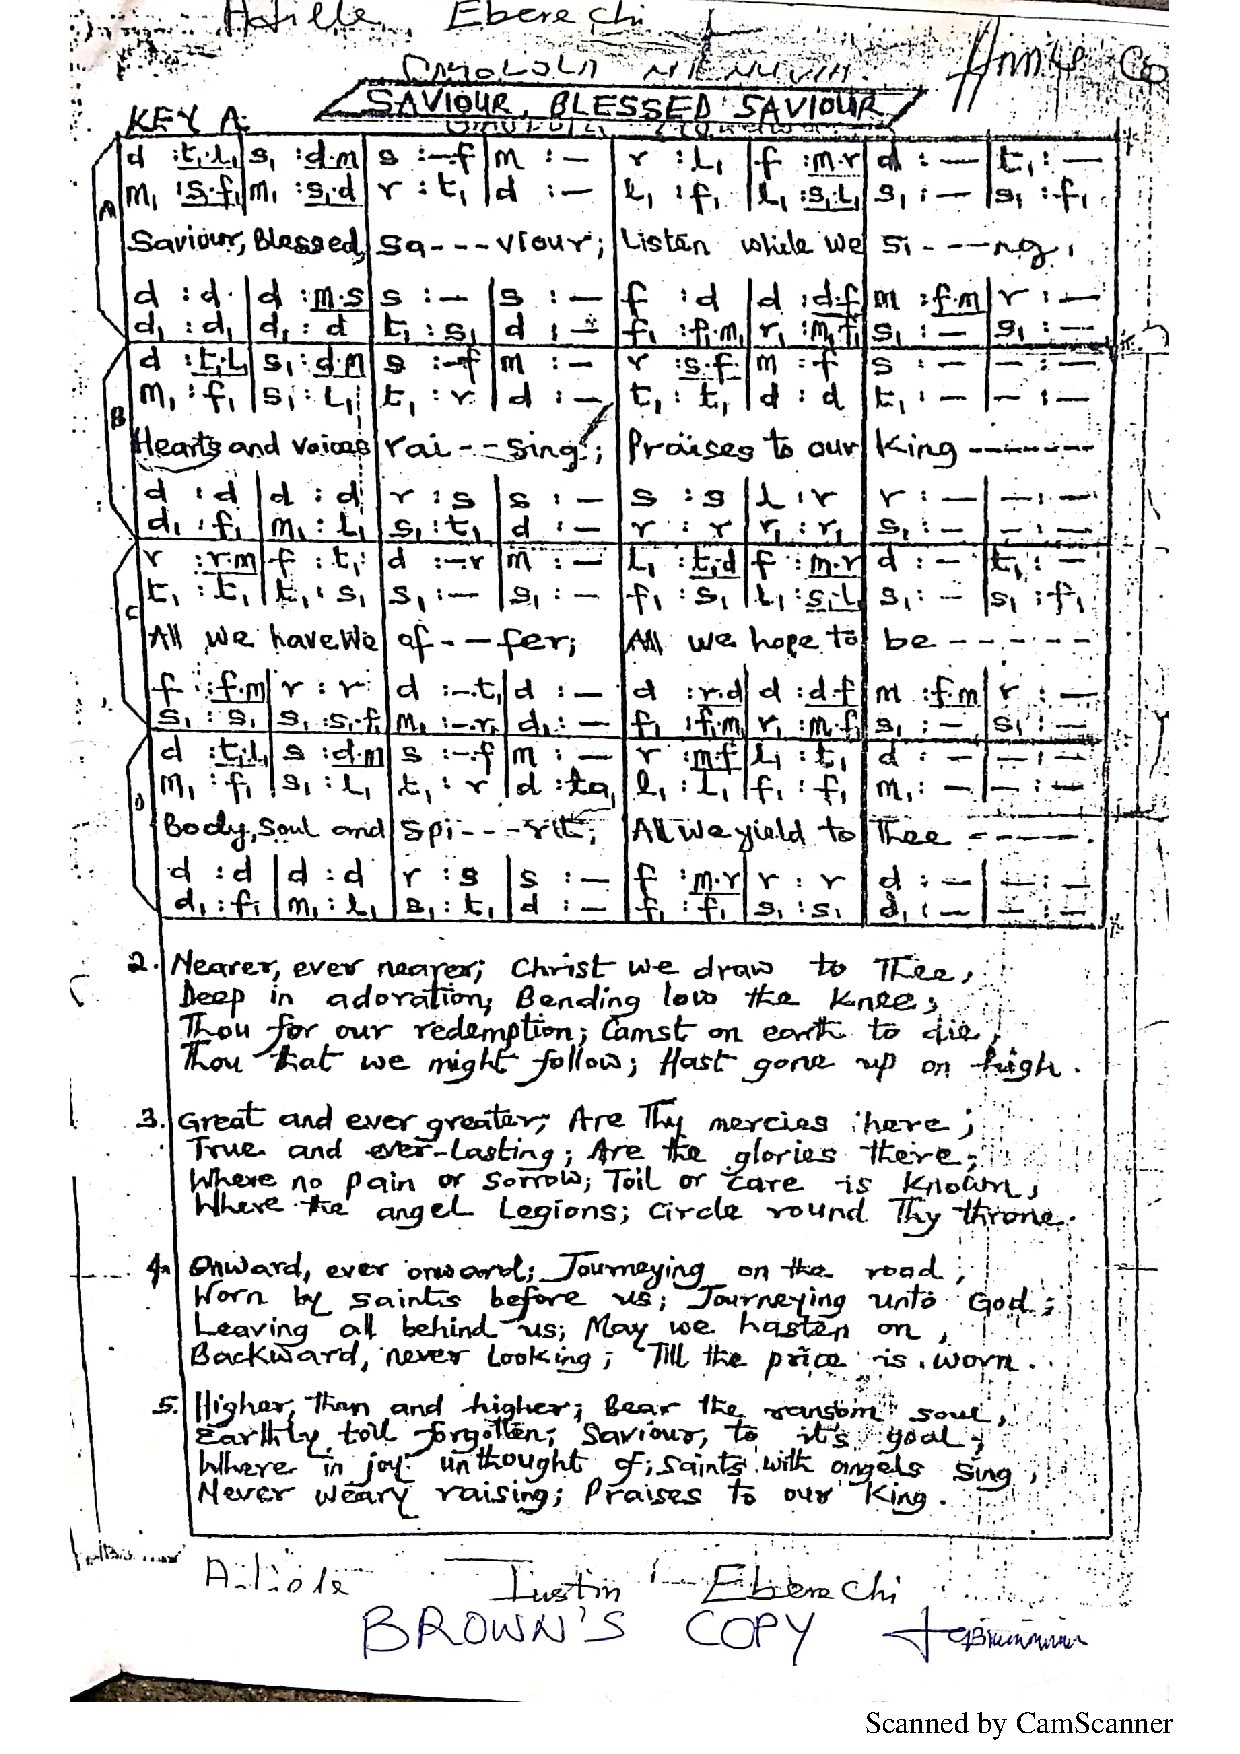 Eberechi
SAVIOUR, BLESSED SAVIOUR
KEY A.
A
d :t₁.l₁ s₁ :d.m s :-.f m :- r :l₁ f :m.r d :- t₁ :-
m₁ :s₁.f₁ m₁ :s₁.d r :t₁ d :- l₁ :f₁ l₁ :s₁.l₁ s₁ :- s₁ :f₁
Saviour, Blessed, Sa---viour; Listen while we Si----ng,
d :d d :m.s s :- s :- f :d d :d.f m :f.m r :-
d₁ :d₁ d₁ :d t₁ :s₁ d :- f₁ :f₁.m₁ r₁ :m₁.f₁ s₁ :- s₁ :-
B
d :t₁.l₁ s₁ :d.m s :-.f m :- r :s.f m :f s :- - :-
m₁ :f₁ s₁ :l₁ t₁ :r d :- t₁ :t₁ d :d t₁ :- - :-
Hearts and voices rai---sing; Praises to our King --------
d :d d :d r :s s :- s :s l :r r :- - :-
d₁ :f₁ m₁ :l₁ s₁ :t₁ d :- r :r r₁ :r₁ s₁ :- - :-
C
r :r.m f :t₁ d :-.r m :- l₁ :t₁.d f :m.r d :- t₁ :-
t₁ :t₁ t₁ :s₁ s₁ :- s₁ :- f₁ :s₁ l₁ :s₁.l₁ s₁ :- s₁ :f₁
All we have we of---fer; All we hope to be ------
f :f.m r :r d :-.t₁ d :- d :r.d d :d.f m :f.m r :-
s₁ :s₁ s₁ :s₁.f₁ m₁ :-.r₁ d₁ :- f₁ :f₁.m₁ r₁ :m₁.f₁ s₁ :- s₁ :-
D
d :t₁.l₁ s :d.m s :-.f m :- r :m.f l₁ :t₁ d :- - :-
m₁ :f₁ s₁ :l₁ t₁ :r d :ta₁ l₁ :l₁ f₁ :f₁ m₁ :- - :-
Body, Soul and Spi---rit; All we yield to Thee ------
d :d d :d r :s s :- f :m.r r :r d :- - :-
d₁ :f₁ m₁ :l₁ s₁ :t₁ d :- f₁ :f₁ s₁ :s₁ d₁ :- - :-
2. Nearer, ever nearer; Christ we draw to Thee,
Deep in adoration; Bending low the knee;
Thou for our redemption; Camst on earth to die,
Thou that we might follow; Hast gone up on high.
3. Great and ever greater; Are Thy mercies here;
True and ever-lasting; Are the glories there;
Where no pain or sorrow; Toil or care is known,
Where the angel Legions; Circle round Thy throne.
4. Onward, ever onward; Journeying on the road,
Worn by saints before us; Journeying unto God;
Leaving all behind us; May we hasten on,
Backward, never looking; Till the price is worn.
5. Higher, than and higher; Bear the ransom soul,
Earthly toil forgotten; Saviour, to it's goal;
Where in joy unthought of; saints with angels sing,
Never weary raising; Praises to our King.
Justin Eberechi
BROWN'S COPY
Scanned by CamScanner